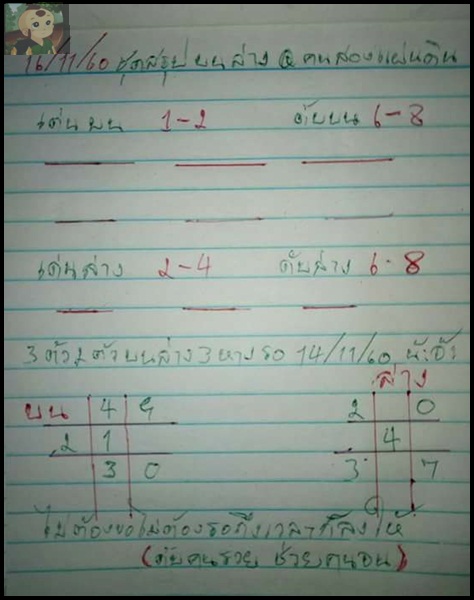 16/11/60 ชุดสรุป บน ล่าง @ คนสองแผ่นดิน
เด่นบน 1-2 ดับบน 6-8
เด่นล่าง 2-4 ดับล่าง 6-8
3 ตัว 2 ตัวบนล่าง 3 หาง รอ 14/11/60 น๊ะจ๊ะ
ล่าง
บน 4 9 2 0
2 1 4
3 0 3 7
ไม่ต้องขอไม่ต้องรอถึงเวลาก็ลงให้
(ดับคนรวย ช่วยคนจน)